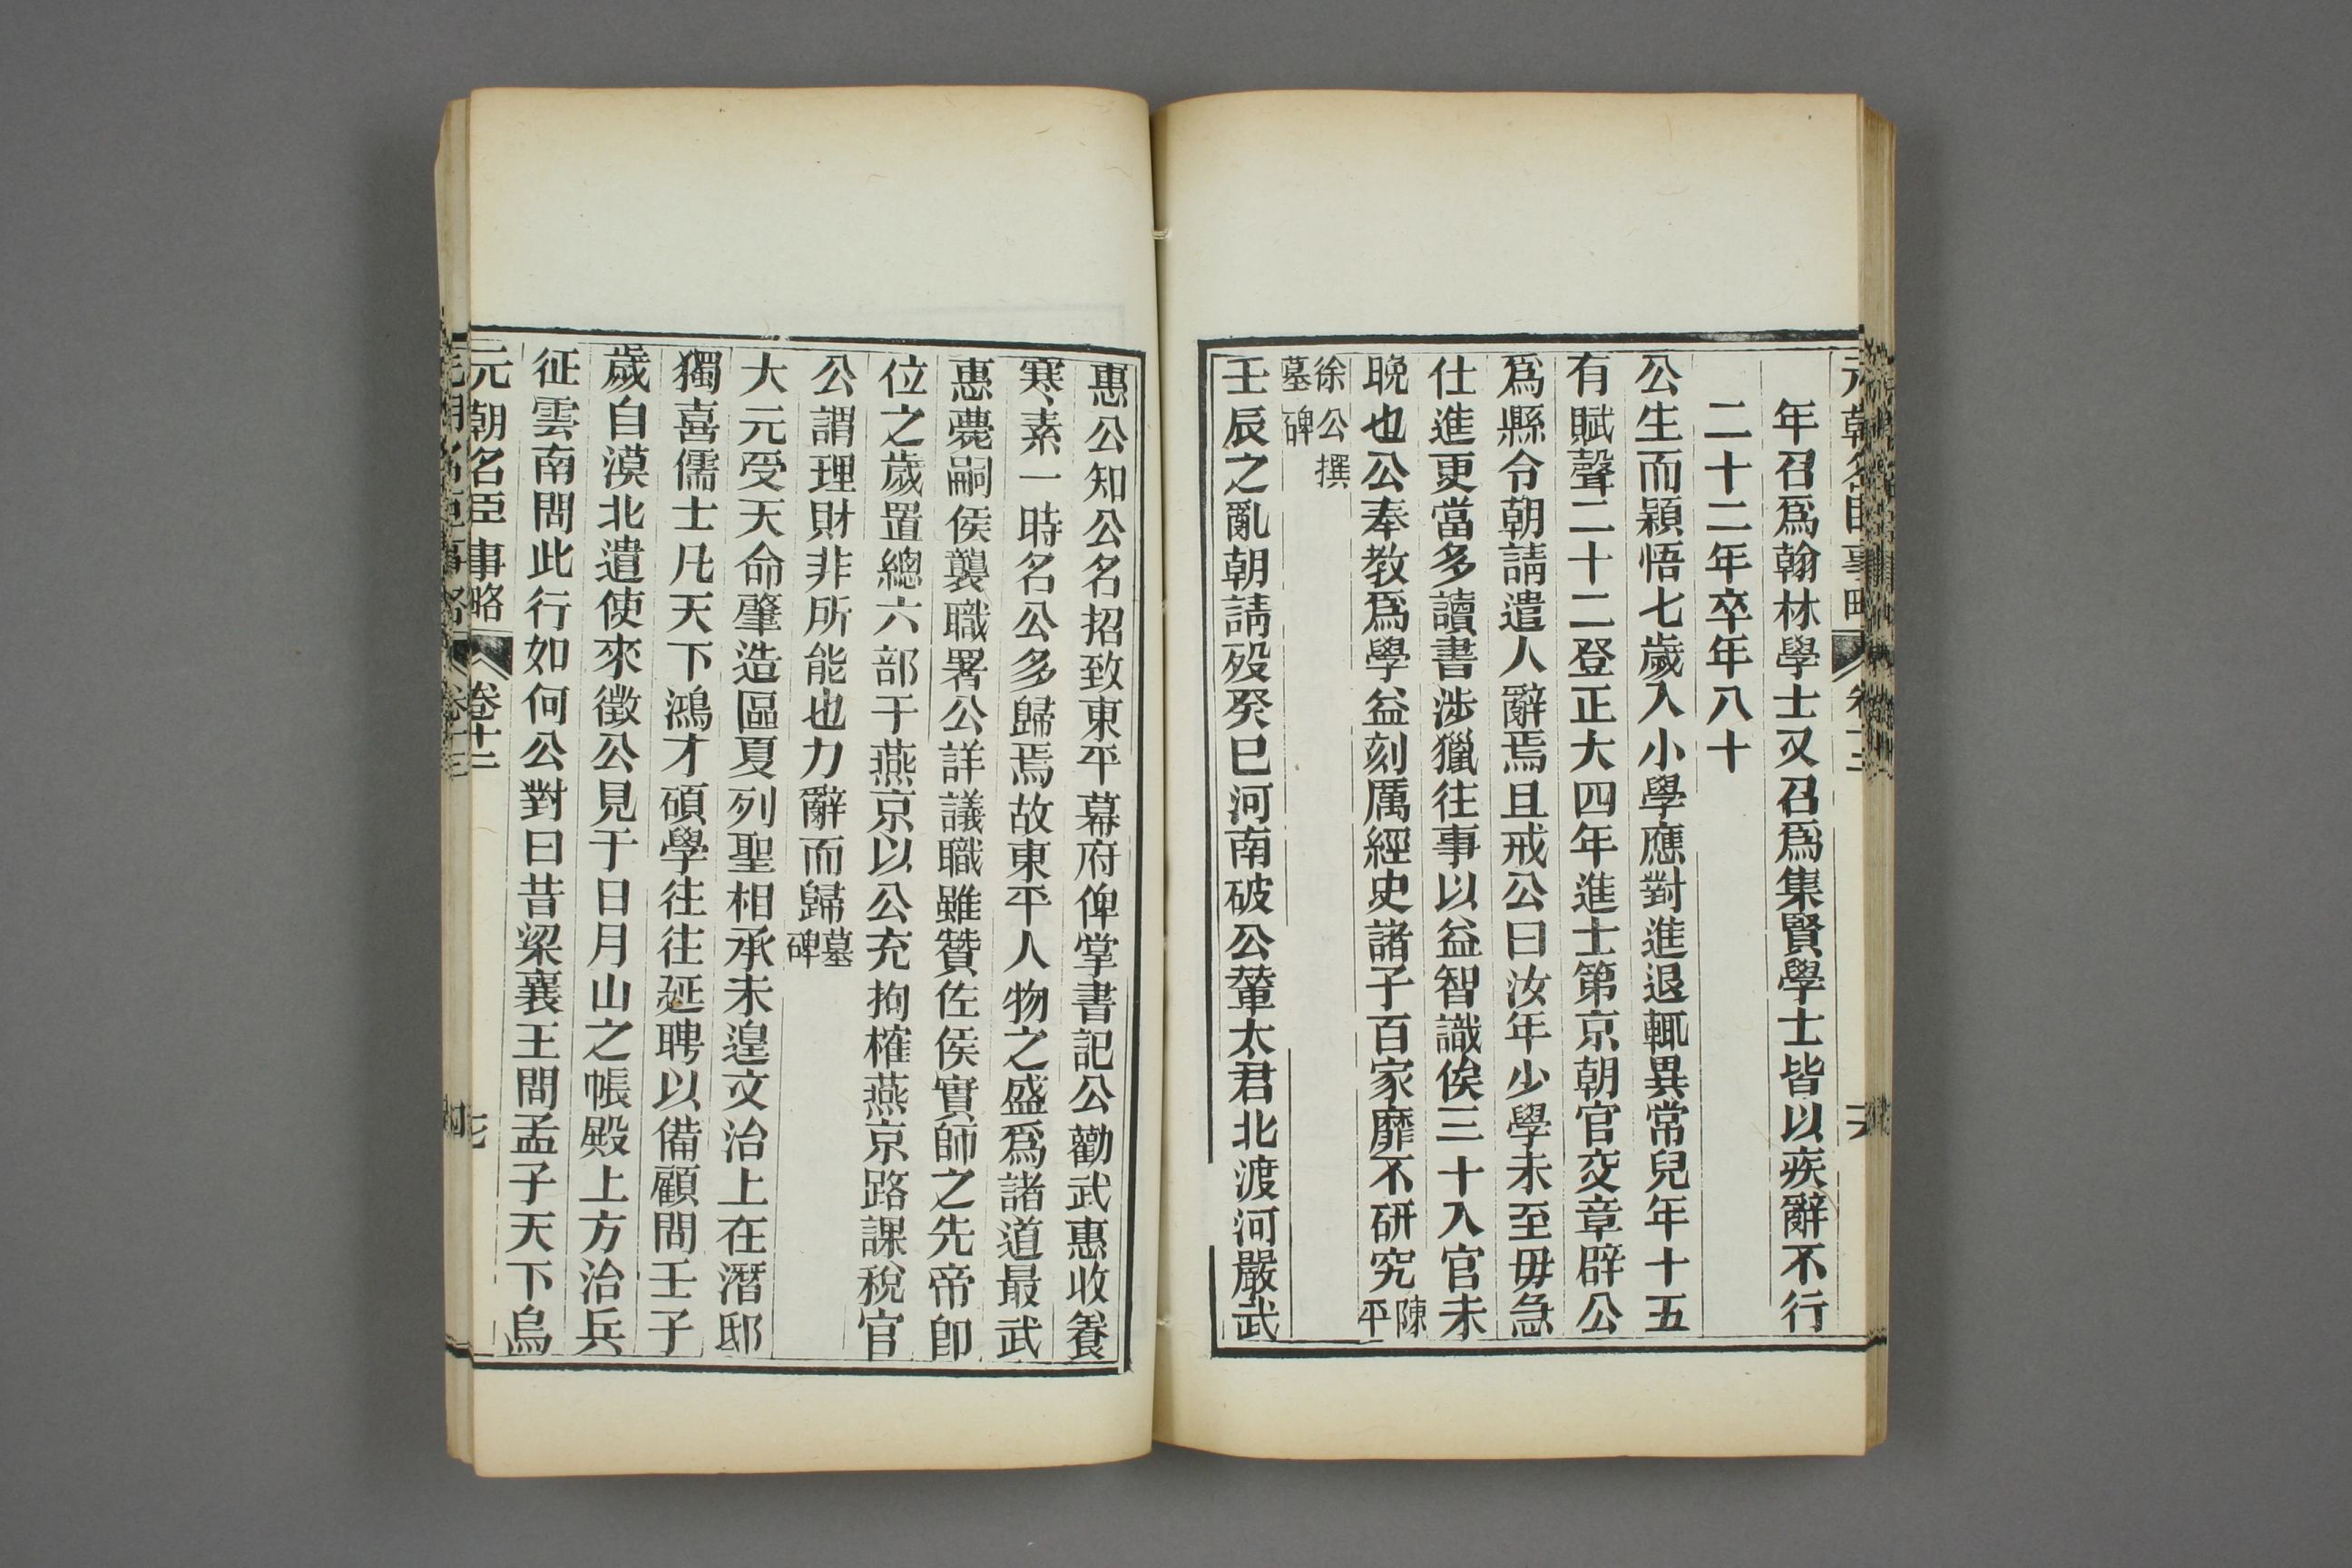 年召爲翰林學士又召爲集賢學士皆以疾辭不行
二十二年卒年八十
公生而穎悟七歲入小學應對進退輒異常兒年十五
有賦聲二十二登正大四年進士第京朝官交章辟公
爲縣令朝請遣人辭焉且戒公曰汝年少學未至毋急
仕進更當多讀書涉獵往事以益智識俟三十入官未
晚也公奉教爲學益刻厲經史諸子百家靡不研究陳平
徐公撰
墓碑
壬辰之亂朝請歿癸巳河南破公輦太君北渡河嚴武
惠公知公名招致東平幕府俾掌書記公勸武惠收養
寒素一時名公多歸焉故東平人物之盛爲諸道最武
惠薨嗣侯襲職署公詳議職雖贊佐侯實師之先帝卽
位之歲置總六部于燕京以公充拘榷燕京路課稅官
公謂理財非所能也力辭而歸墓碑
大元受天命肇造區夏列聖相承未遑文治上在潛邸
獨喜儒士凡天下鴻才碩學往往延聘以備顧問壬子
歲自漠北遣使來徵公見于日月山之帳殿上方治兵
征雲南問此行如何公對曰昔梁襄王問孟子天下烏
元朝名臣事略 卷十二 七